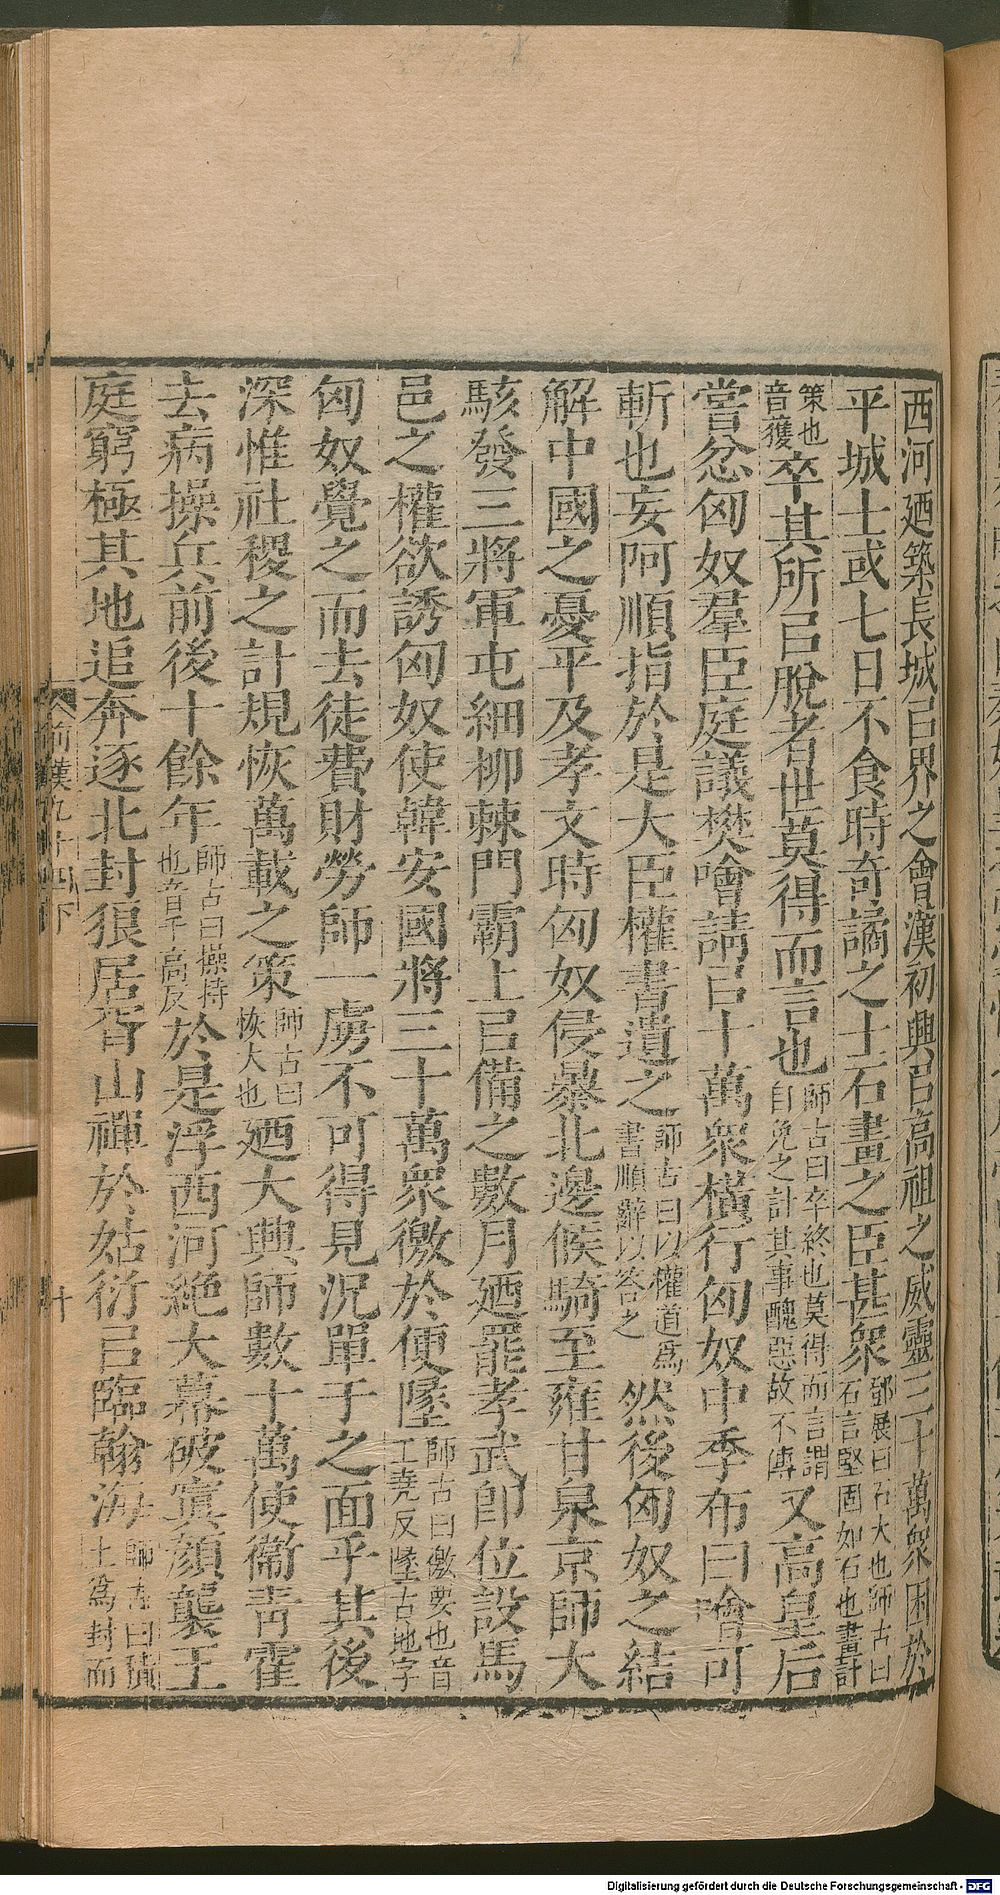 西河迺築長城㠯界之會漢初興㠯高祖之威靈三十萬衆困於
平城士或七日不食時奇譎之士石畫之臣甚衆鄧展曰石大也師古曰石言堅固如石也畫計
策也音獲卒其所㠯脫者世莫得而言也師古曰卒終也莫得而言謂自免之計其事醜惡故不傳又高皇后
嘗忿匈奴羣臣庭議樊噲請㠯十萬衆橫行匈奴中季布曰噲可
斬也妄阿順指於是大臣權書遺之師古曰以權道爲書順辭以答之然後匈奴之結
解中國之憂平及孝文時匈奴侵暴北邊候騎至雍甘泉京師大
駭發三將軍屯細柳棘門霸上㠯備之數月迺罷孝武卽位設馬
邑之權欲誘匈奴使韓安國將三十萬衆徼於便墬師古曰徼要也音工堯反墬古地字
匈奴覺之而去徒費財勞師一虜不可得見況單于之面乎其後
深惟社稷之計規恢萬載之策師古曰恢大也迺大興師數十萬使衞靑霍
去病操兵前後十餘年師古曰操持也音千高反於是浮西河絕大幕破寘顏襲王
庭窮極其地追奔逐北封狼居胥山禪於姑衍㠯臨翰海師古曰積土爲封而
前漢九十四下
十
Digitalisierung gefördert durch die Deutsche Forschungsgemeinschaft - DFG